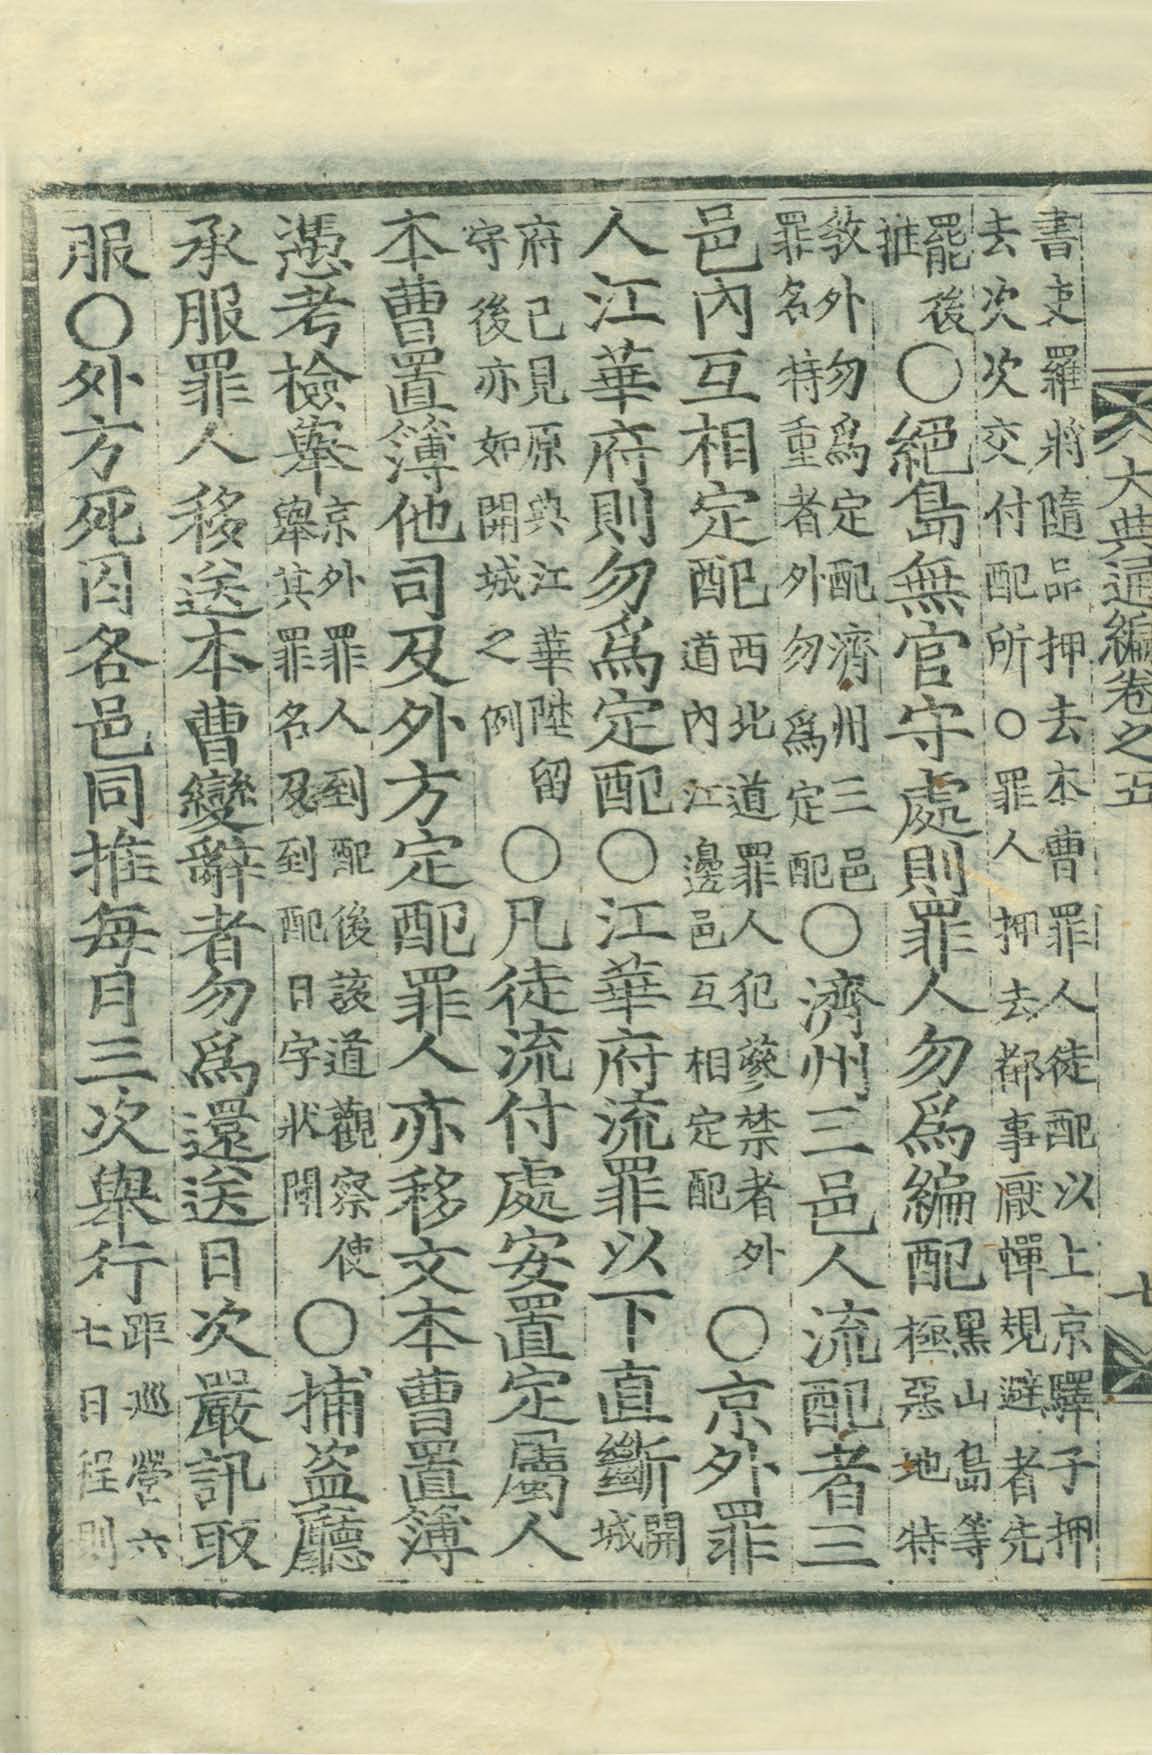 大典通編卷之五 七
書吏羅將隨品押去本曹罪人徒配以上京驛子押
去次次交付配所○罪人押去都事厭憚規避者先
罷後
推
○絕島無官守處則罪人勿爲編配
黑山島等
極惡地特
敎外勿爲定配濟州三邑
罪名特重者外勿爲定配
○濟州三邑人流配者三
邑內互相定配
西北道罪人犯蔘禁者外
道內江邊邑互相定配
○京外罪
人江華府則勿爲定配○江華府流罪以下直斷
開
城
府已見原典江華陞留
守後亦如開城之例
○凡徒流付處安置定屬人
本曹置簿他司及外方定配罪人亦移文本曹置簿
憑考檢擧
京外罪人到配後該道觀察使
擧其罪名及到配日字狀聞
○捕盜廳
承服罪人移送本曹變辭者勿爲還送日次嚴訊取
服○外方死囚各邑同推每月三次擧行
距巡營六
七日程則